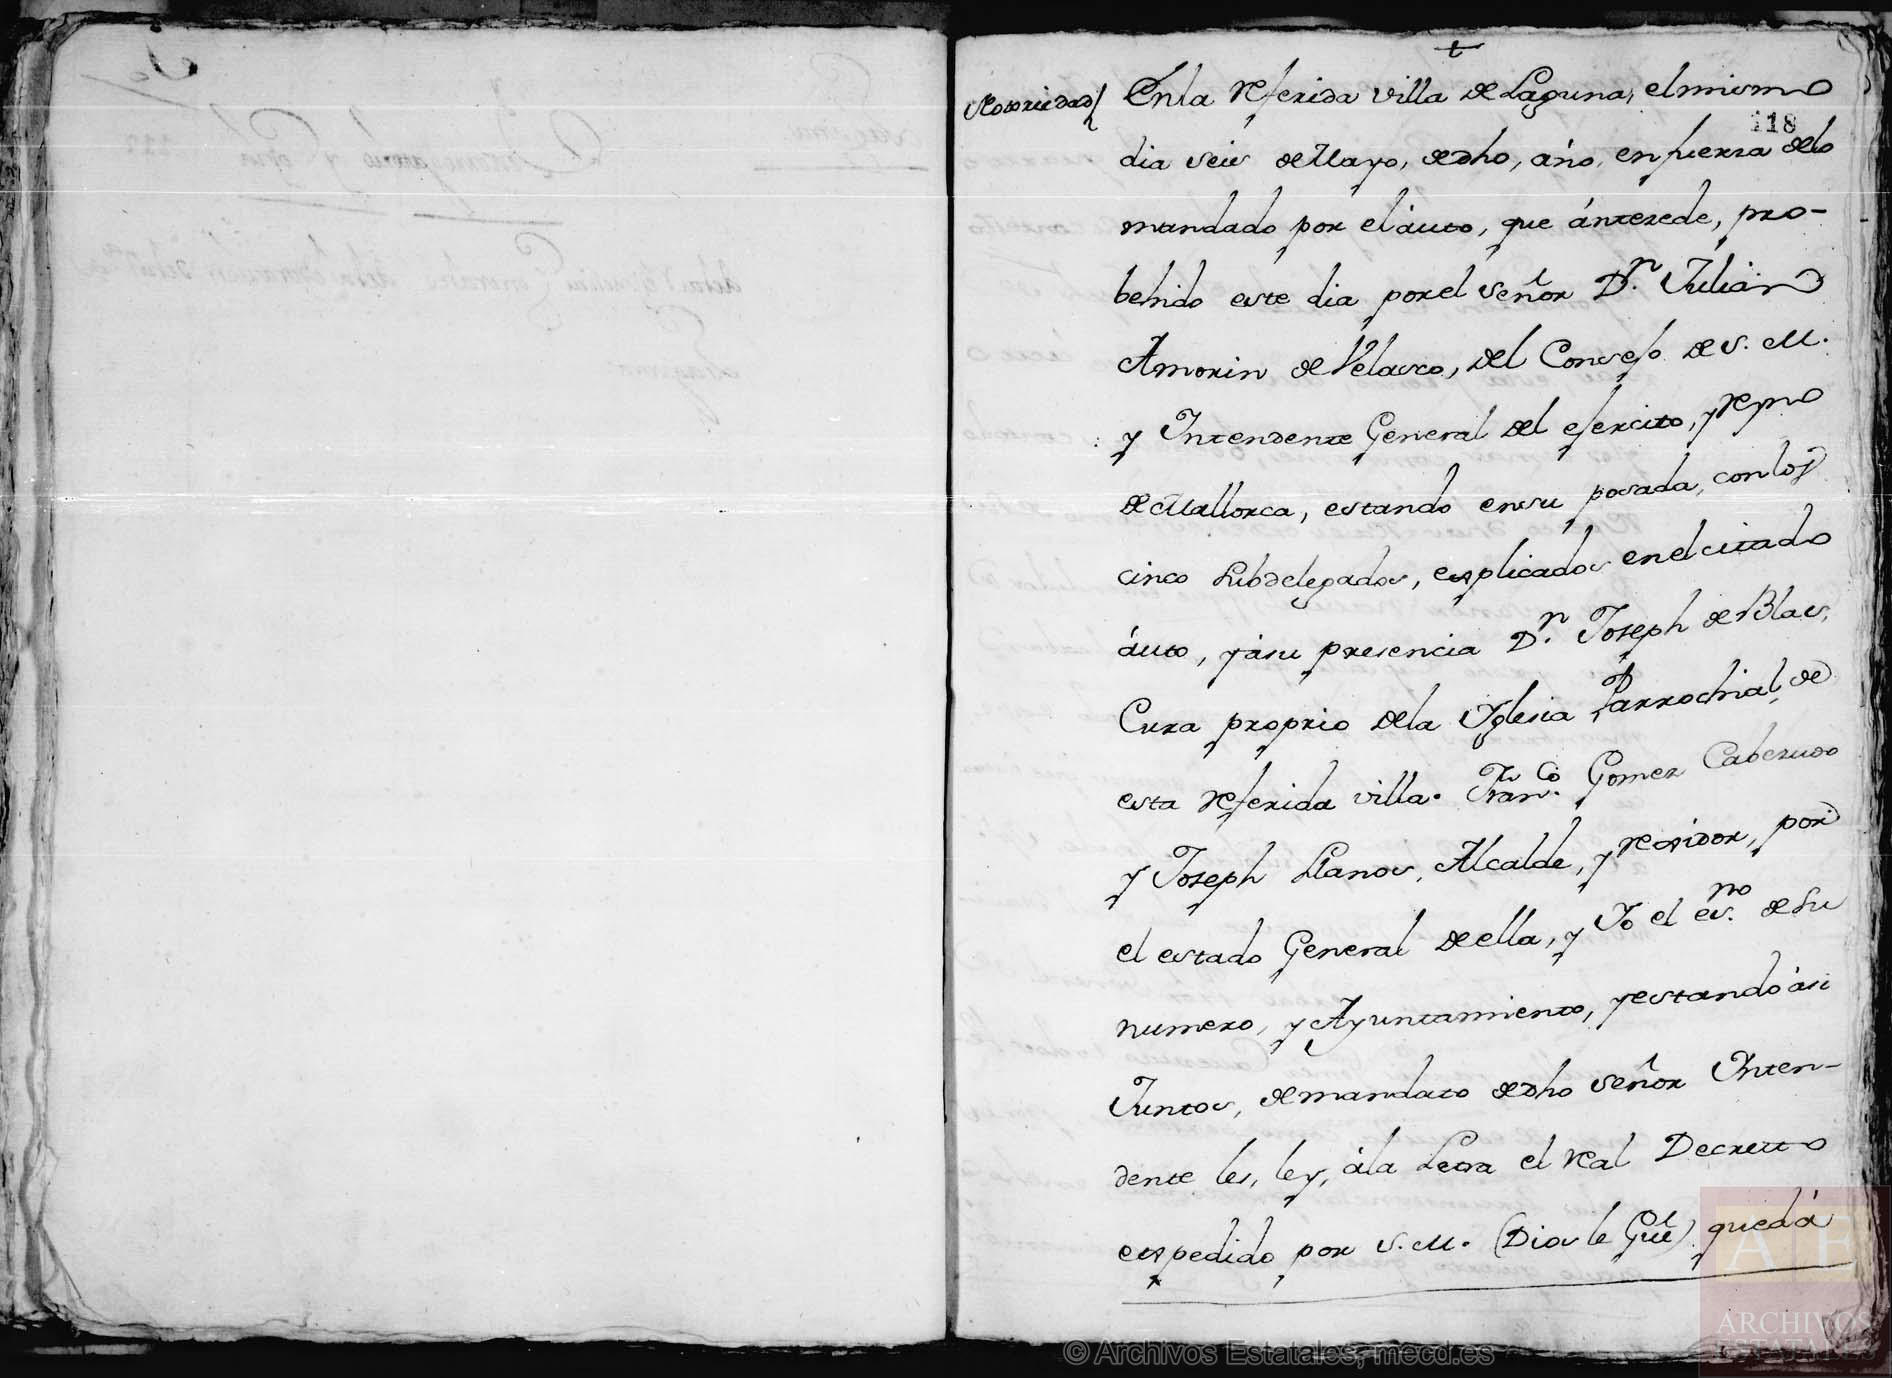 +
Notoriedad
En la referida villa de Laguna, el mismo
118
dia seis de Mayo, de dho, año, en fuerza delo
mandado por el áuto, que ántezede, pro-
behido este dia por el señor Dn. Julián
Amorin de Velasco, del Consejo de S. M.
y Intendente General del ejercito, y reyno
de Mallorca, estando en su posada, con los
cinco subdelegados, esplicados en el citado
áuto, y ásu presencia Dn. Joseph de Blas,
Cura proprio dela Yglesia Parrochial, de
esta referida villa. Franco. Gomez Cabezudo
y Joseph Llanos, Alcalde, y residor, por
el estado General de ella, y Yo el esno. de su
numero, y Ayuntamiento, y estando ási
Juntos, de mandato de dho señor Ynten-
dente les, ley, ála Letra el real Decretto
espedido por S. M. (Dios le Gue) quedá
A E
ARCHIVOS
ESTATALES
© Archivos Estatales, mecd.es